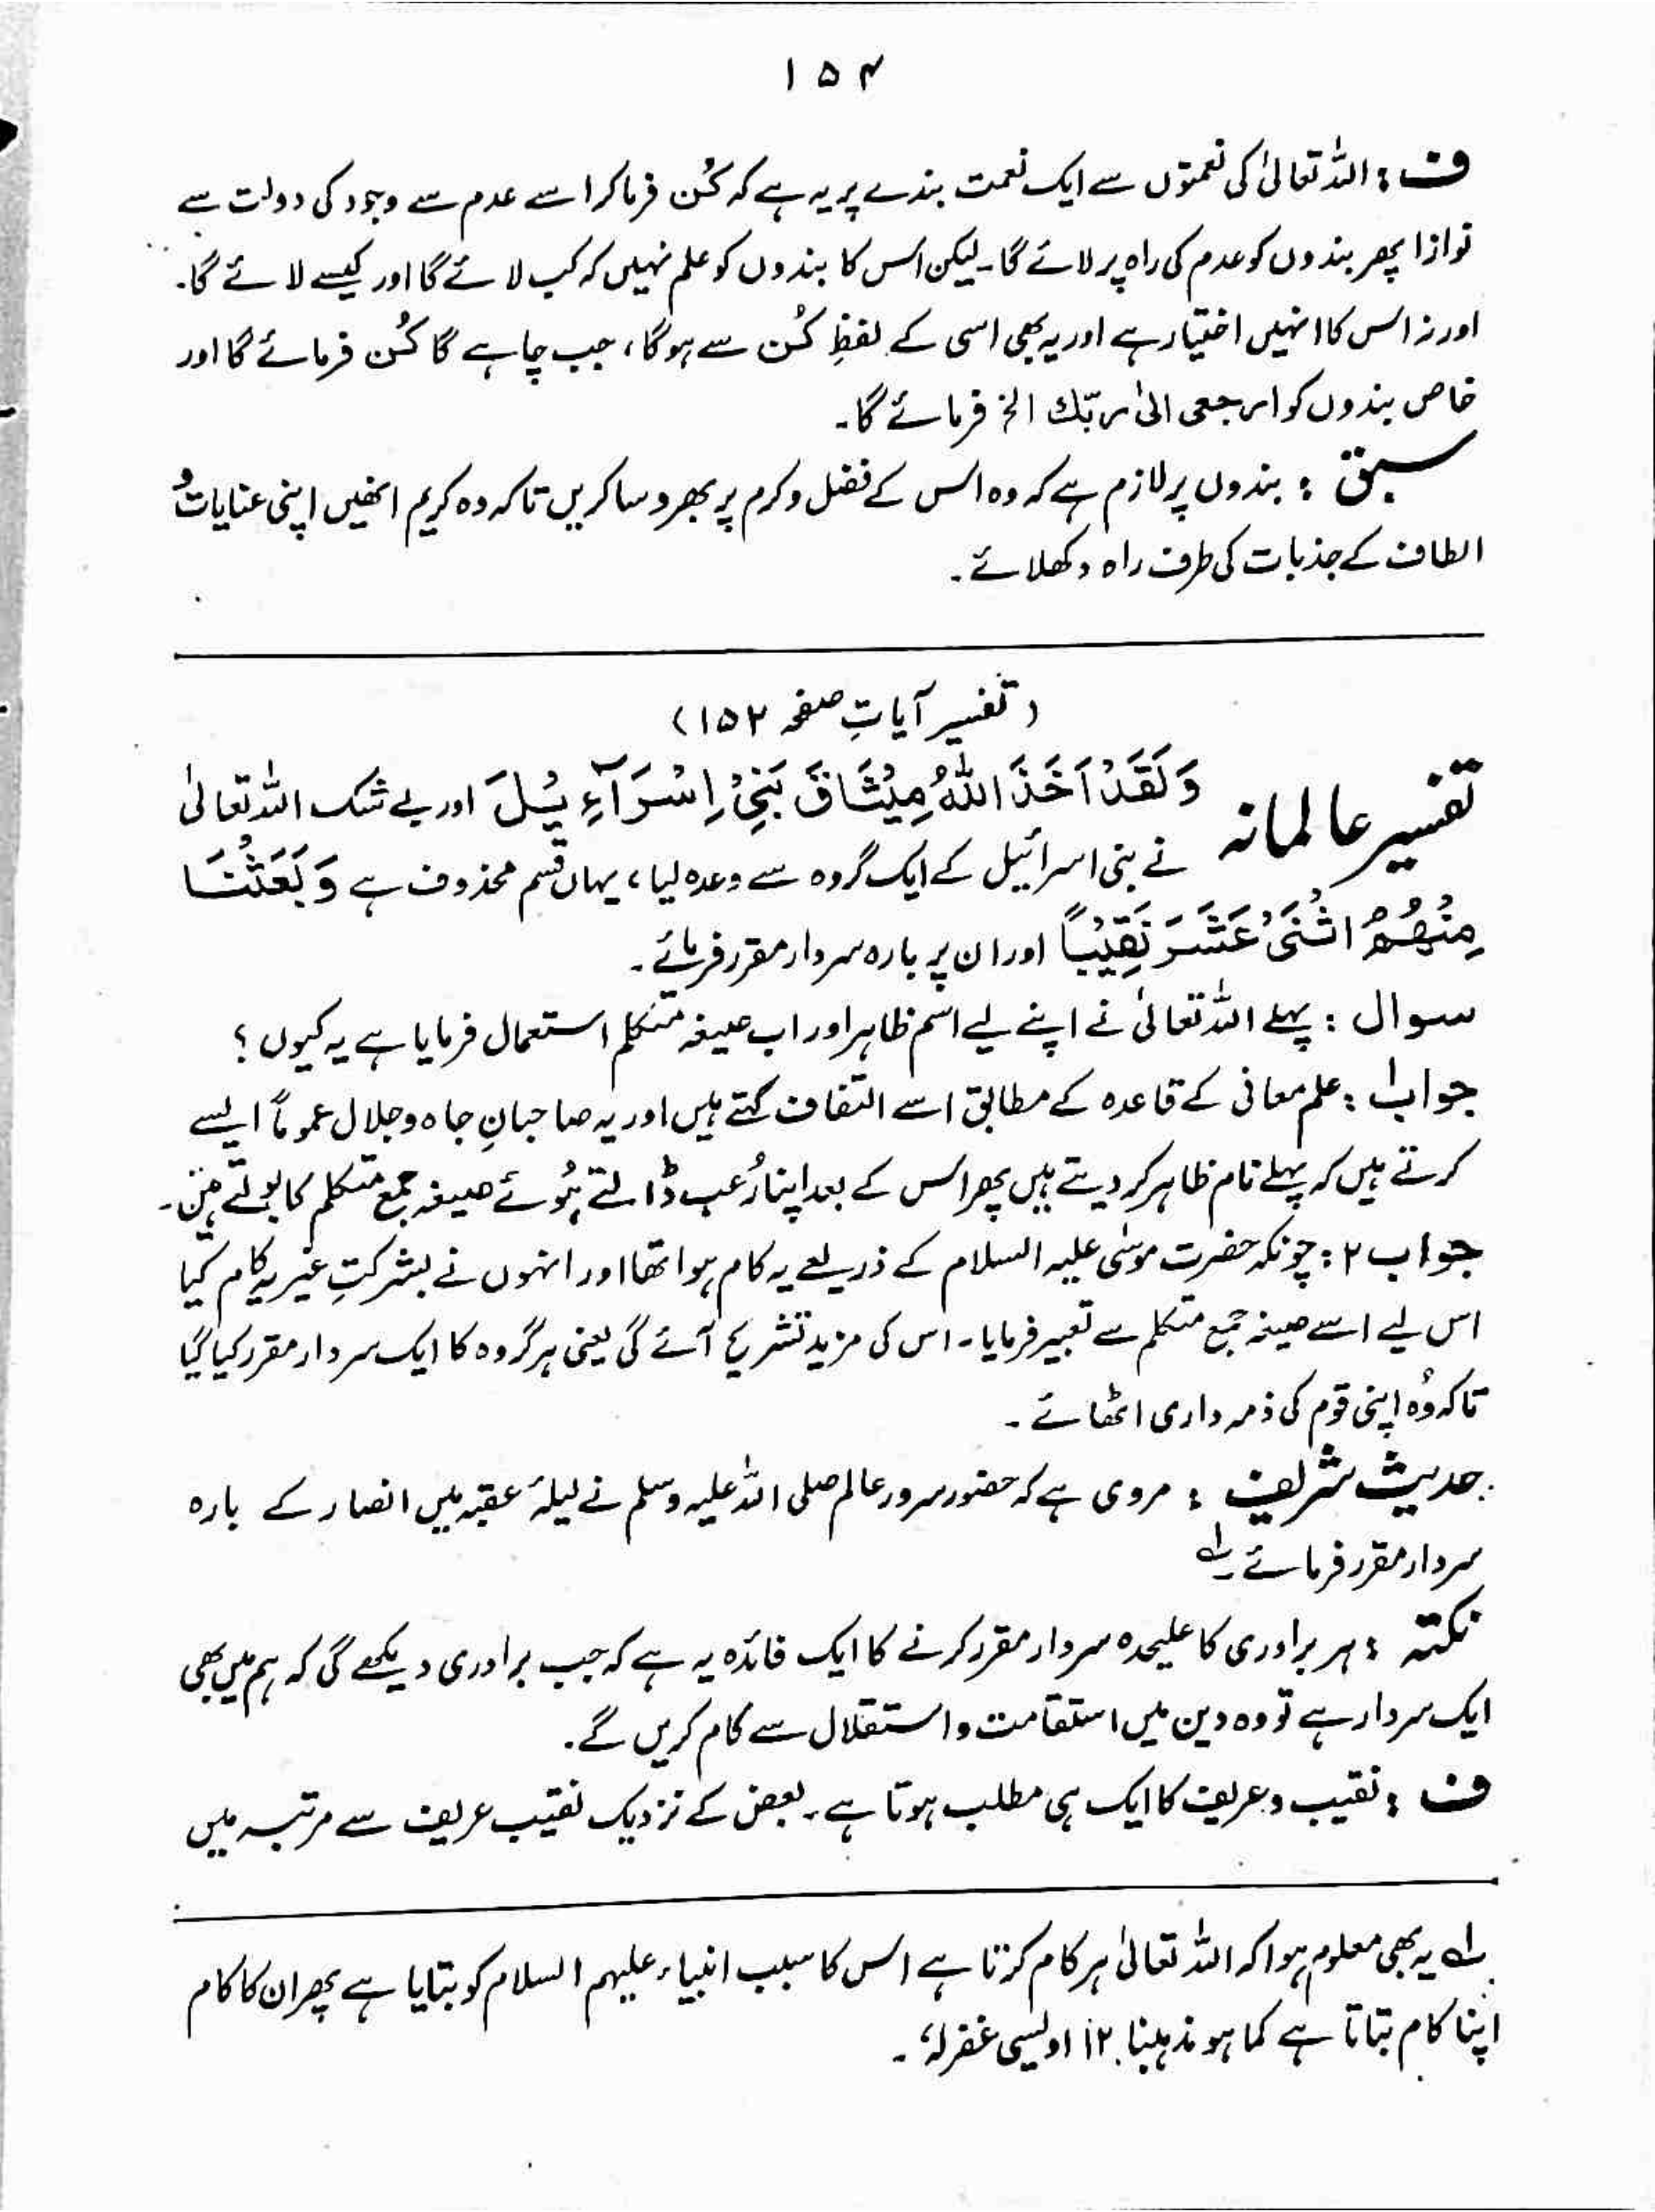 ۱۵۴
ف : اللہ تعالیٰ کی نعمتوں سے ایک نعمت بندے پر یہ ہے کہ کُن فرما کر اسے عدم سے وجود کی دولت سے
نوازا پھر بندوں کو عدم کی راہ پر لائے گا۔ لیکن اس کا بندوں کو علم نہیں کہ کب لائے گا اور کیسے لائے گا۔
اور نہ اس کا انہیں اختیار ہے اور یہ بھی اسی کے لفظِ کُن سے ہوگا، جب چاہے گا کُن فرمائے گا اور
خاص بندوں کو ارجعی الیٰ ربّك الخ فرمائے گا۔
سبق : بندوں پر لازم ہے کہ وہ اس کے فضل و کرم پر بھروسا کریں تاکہ وہ کریم انھیں اپنی عنایات و
الطاف کے جذبات کی طرف راہ دکھلائے۔
(تفسیر آیاتِ صفحہ ۱۵۲)
تفسیر عالمانہ وَلَقَدْ اَخَذَ اللهُ مِيْثَاقَ بَنِيْ اِسْرَآءِيْلَ اور بے شک اللہ تعالیٰ
نے بنی اسرائیل کے ایک گروہ سے وعدہ لیا، یہاں قسم محذوف ہے وَبَعَثْنَا
مِنْهُمُ اثْنَيْ عَشَرَ نَقِيْبًا اور ان پر بارہ سردار مقرر فرمائے۔
سوال : پہلے اللہ تعالیٰ نے اپنے لیے اسم ظاہر اور اب صیغہ متکلم استعمال فرمایا ہے یہ کیوں ؟
جواب ۱ : علم معانی کے قاعدہ کے مطابق اسے التفات کہتے ہیں اور یہ صاحبانِ جاہ و جلال عموماً ایسے
کرتے ہیں کہ پہلے نام ظاہر کر دیتے ہیں پھر اس کے بعد اپنا رُعب ڈالتے ہُوئے صیغہ جمع متکلم کا بولتے ہیں۔
جواب ۲ : چونکہ حضرت موسٰی علیہ السلام کے ذریعے یہ کام ہوا تھا اور انہوں نے بشرکتِ غیر یہ کام کیا
اس لیے اسے صیغہ جمع متکلم سے تعبیر فرمایا۔ اس کی مزید تشریح آئے گی یعنی ہر گروہ کا ایک سردار مقرر کیا گیا
تاکہ وُہ اپنی قوم کی ذمہ داری اٹھائے۔
حدیث شریف : مروی ہے کہ حضور سرور عالم صلی اللہ علیہ وسلم نے لیلۂ عقبہ میں انصار کے بارہ
سردار مقرر فرمائے۔ لہ
نکتہ : ہر برادری کا علیحدہ سردار مقرر کرنے کا ایک فائدہ یہ ہے کہ جب برادری دیکھے گی کہ ہم میں بھی
ایک سردار ہے تو وہ دین میں استقامت و استقلال سے کام کریں گے۔
ف : نقیب و عریف کا ایک ہی مطلب ہوتا ہے۔ بعض کے نزدیک نقیب عریف سے مرتبہ میں
لہ یہ بھی معلوم ہوا کہ اللہ تعالیٰ ہر کام کرتا ہے اس کا سبب انبیاء علیہم السلام کو بتایا ہے پھر ان کا کام
اپنا کام بتاتا ہے کما ہو مذہبنا ۱۲ اویسی غفرلہٗ۔